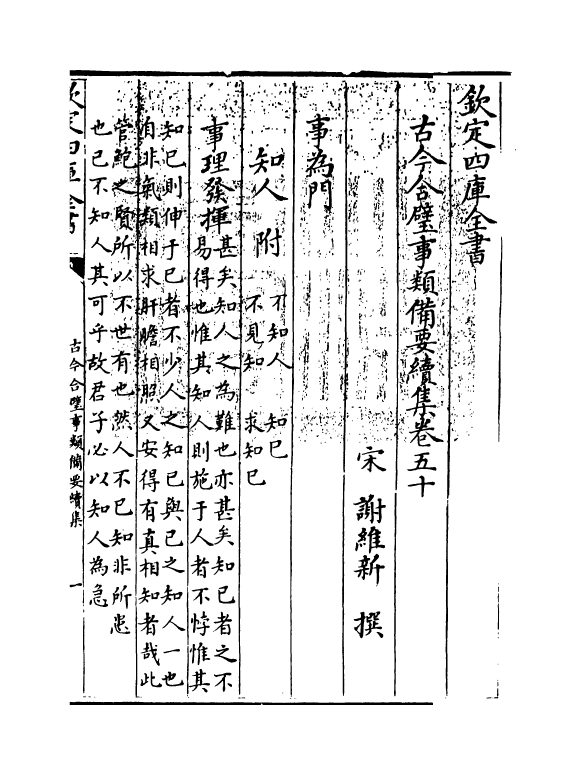 欽定四庫全書
古今合璧事類備要續集卷五十
宋 謝維新 撰
事為門
知人 附 不知人 知已
不見知 求知已
事理發揮 甚矣知人之為難也亦甚矣知已者之不
易得也惟其知人則施于人者不悖惟其
知已則伸于已者不少人之知已與已之知人一也
自非氣類相求肝膽相照又安得有真相知者哉此
管鮑之賢所以不世有也然人不已知非所患
也已不知人其可乎故君子必以知人為急
欽定四庫全書
古今合璧事類備要續集
一